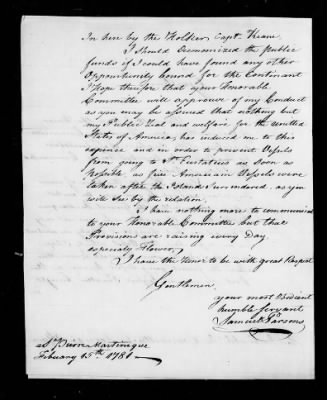 In here by the Holker, Capt. Keane.
I Should Oeconomized the Public
funds if I could have found any other
Oppourtunity bound for the Continant
I Hope therefore that your Honorable
Committee will approuve of my Conduct
as you may be assured that nothing but
my Public Zeal and welfair for the united
States of America, has induced me to this
expence and in order to prevent Vessels
from going to St. Eustatius as Soon as
Possible as five American Vessels were
taken after the Islands Surrendered, as you
will See by the relation.
I have nothing more to communicat
to your Honorable Committee but that
Provisions are raising every Day
especialy Flower,
I have the Honor to be with great Respect
Gentlemen,
your most Obediant
humble Servant
Samuel Parsons
St. Pierre Martinique
Febuary 15th. 1781